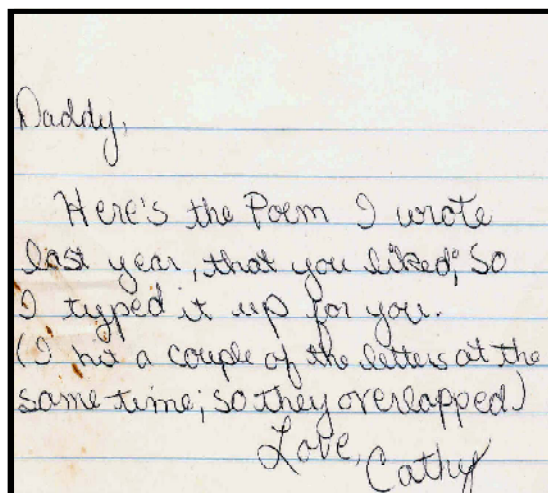 Daddy,
Here's the Poem I wrote
last year, that you liked; So
I typed it up for you.
(I hit a couple of the letters at the
same time; so they overlapped)
Love,
Cathy